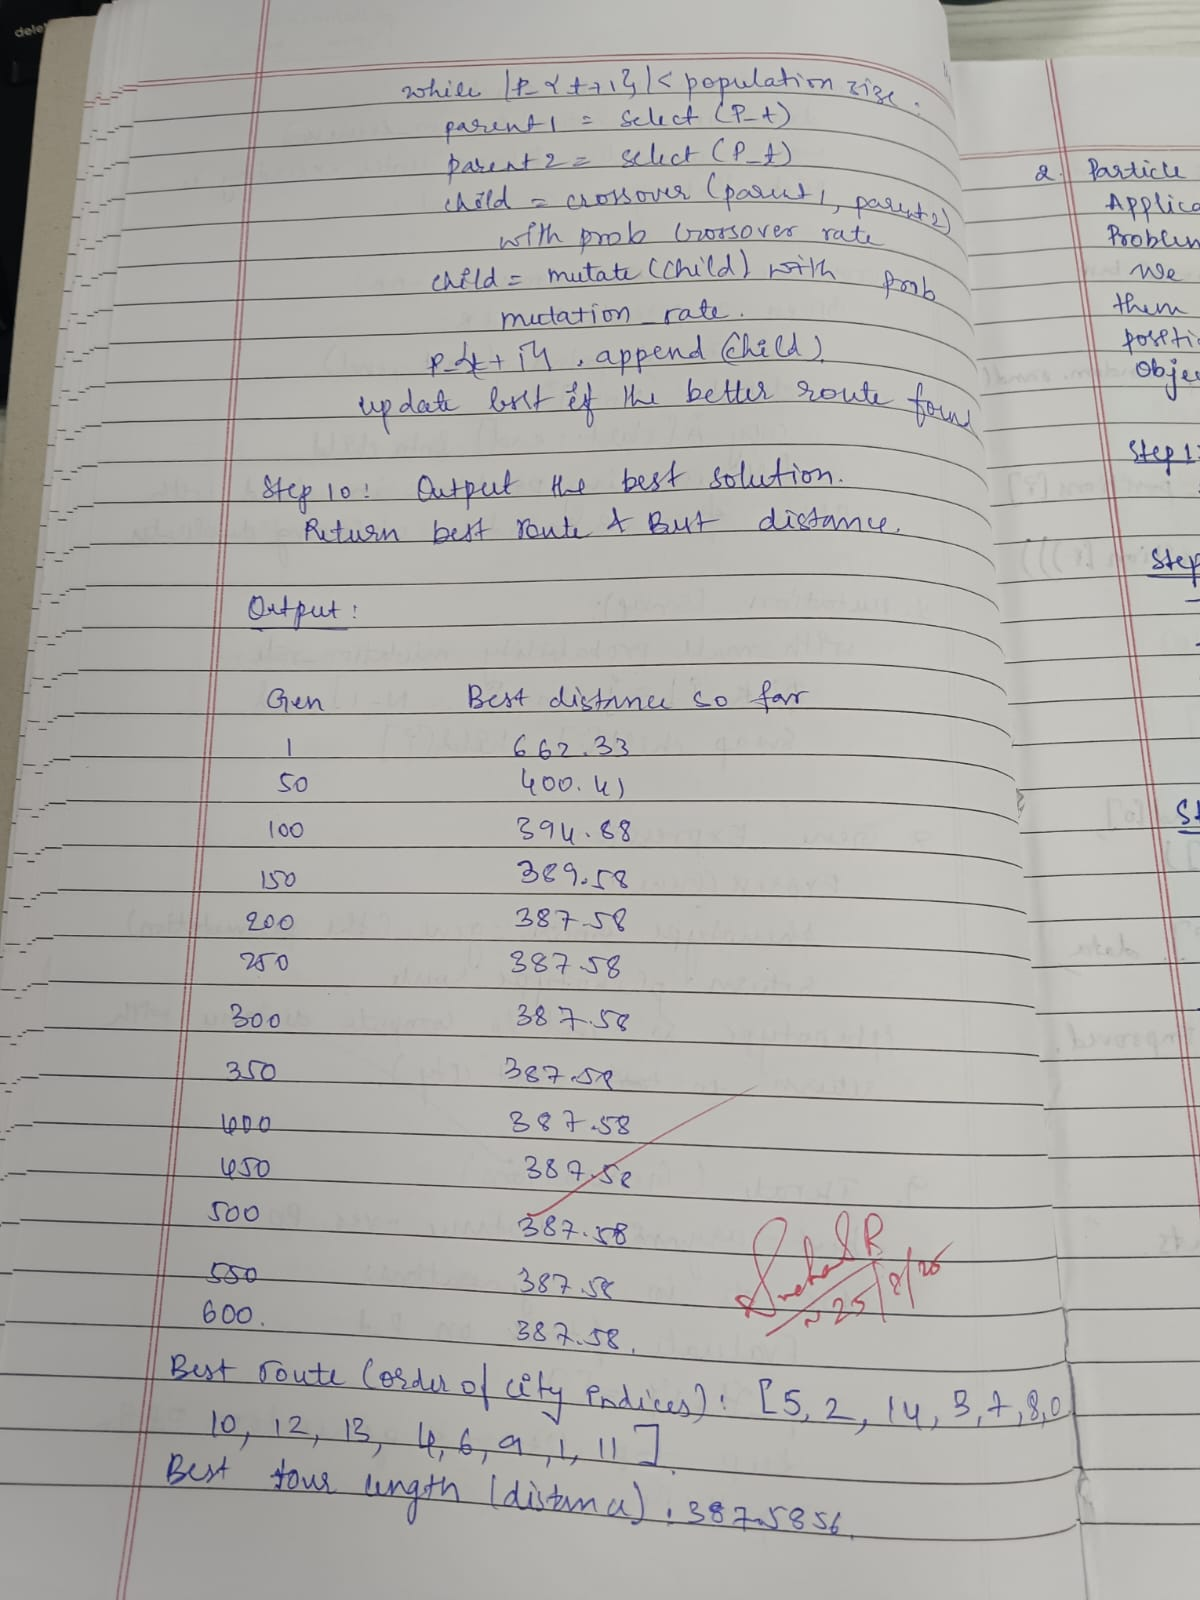 while |P_{t+1}| < population size :
parent1 = select (P_t)
parent2 = select (P_t)
child = crossover (parent1, parent2)
with prob crossover rate
child = mutate (child) with prob
mutation_rate.
P_{t+1}. append (child)
update best if the better route found
Step 10: Output the best solution.
Return best route & Best distance.
Output :
Gen Best distance so far
1 662.33
50 400.41
100 394.88
150 389.58
200 387.58
250 387.58
300 387.58
350 387.58
400 387.58
450 387.58
500 387.58
550 387.58
600. 387.58.
Best route (order of city indices) : [5, 2, 14, 3, 7, 8, 0
10, 12, 13, 4, 6, 9, 1, 11]
Best tour length (distance) : 387.5856.
25/8/25
2. Particle
Applica
Problem
We
them
positi
Obje
Step 1:
Step
St
dele